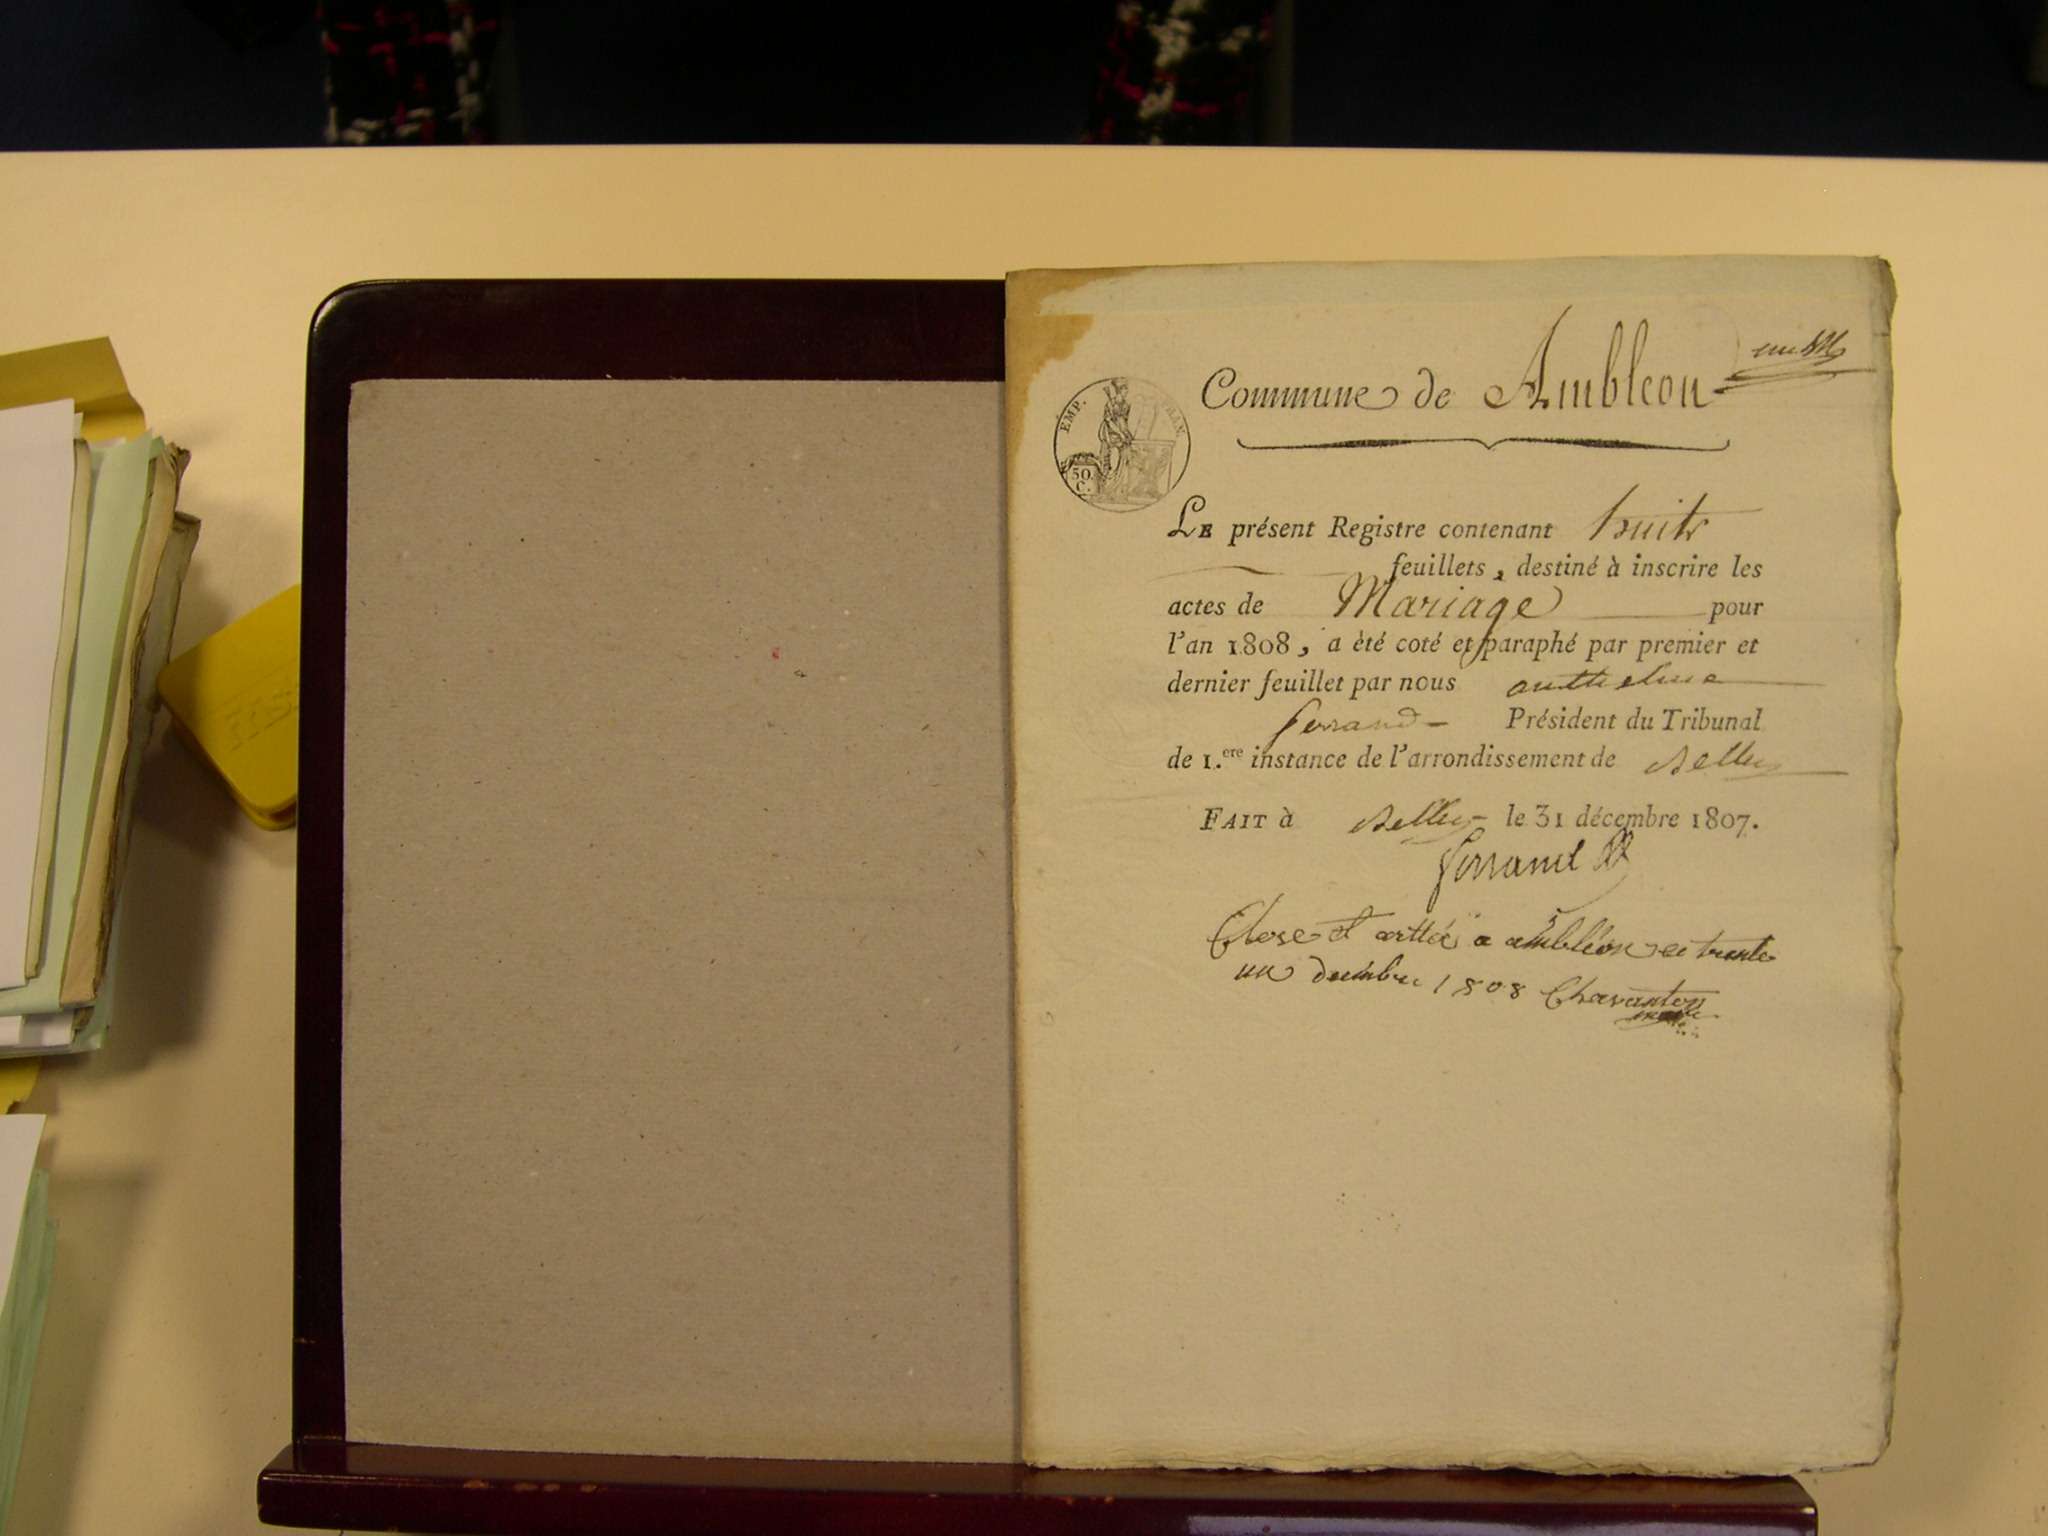 Commune de Ambleon
EMP. FRAN.
50
C.
LE présent Registre contenant huit
feuillets, destiné à inscrire les
actes de Mariage pour
l'an 1808, a été coté et paraphé par premier et
dernier feuillet par nous anthelme
ferrand Président du Tribunal
de 1.ere instance de l'arrondissement de Belley
FAIT à Belley le 31 décembre 1807.
ferrand
Close et a ambléon ce trente
un decembre 1808 Chavanton